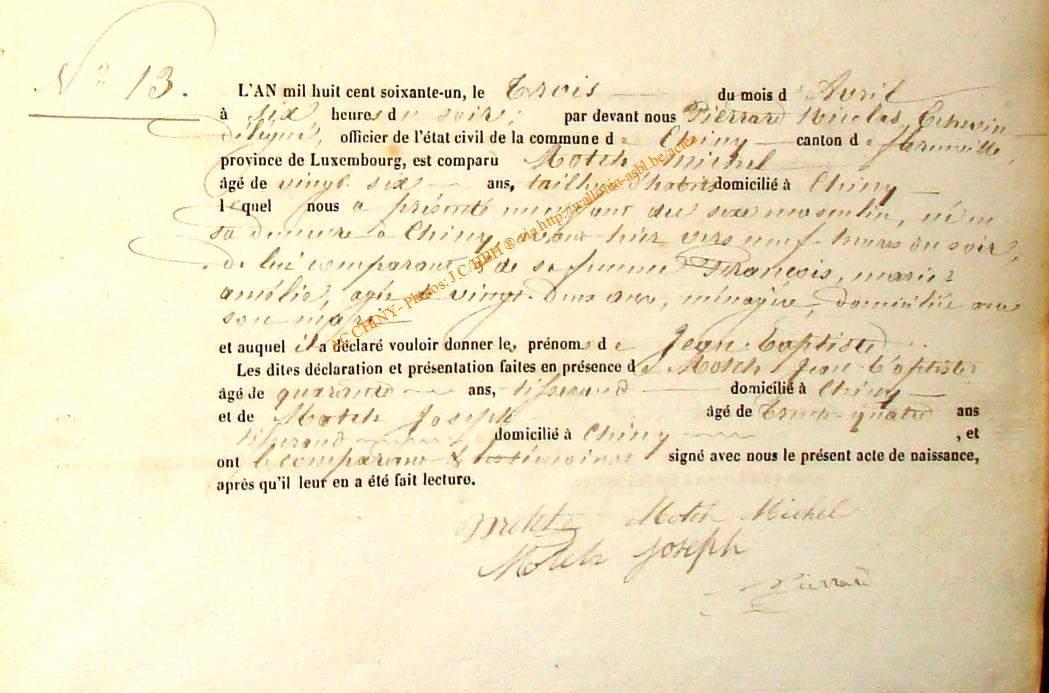 N° 13.
L'AN mil huit cent soixante-un, le Trois du mois d Avril
à six heures du soir; par devant nous Pierrard Nicolas, Echevin
délégué, officier de l'état civil de la commune de Chiny canton de florenville,
province de Luxembourg, est comparu Motch michel
âgé de vingt six ans, tailleur d'habits domicilié à Chiny
lequel nous a présenté un enfant du sexe masculin, né en
sa demeure à Chiny avant hier vers neuf heures du soir,
de lui comparant & de sa femme François, marie
amélie, agée de vingt-deux ans, ménagère, domiciliée avec
son mari
et auquel il a déclaré vouloir donner les prénoms de Jean Baptiste
Les dites déclaration et présentation faites en présence de Motch Jean Baptiste
âgé de quarante ans, tisserand domicilié à Chiny
et de Motch Joseph âgé de Trente-quatre ans
tisserand domicilié à Chiny , et
ont le comparant & les témoins signé avec nous le présent acte de naissance,
après qu'il leur en a été fait lecture.
Motch Michel
Motch Joseph
Pierrard
AC CHINY- Photos: J.C/HBH ® via http://wallonia-asbl.be/actes